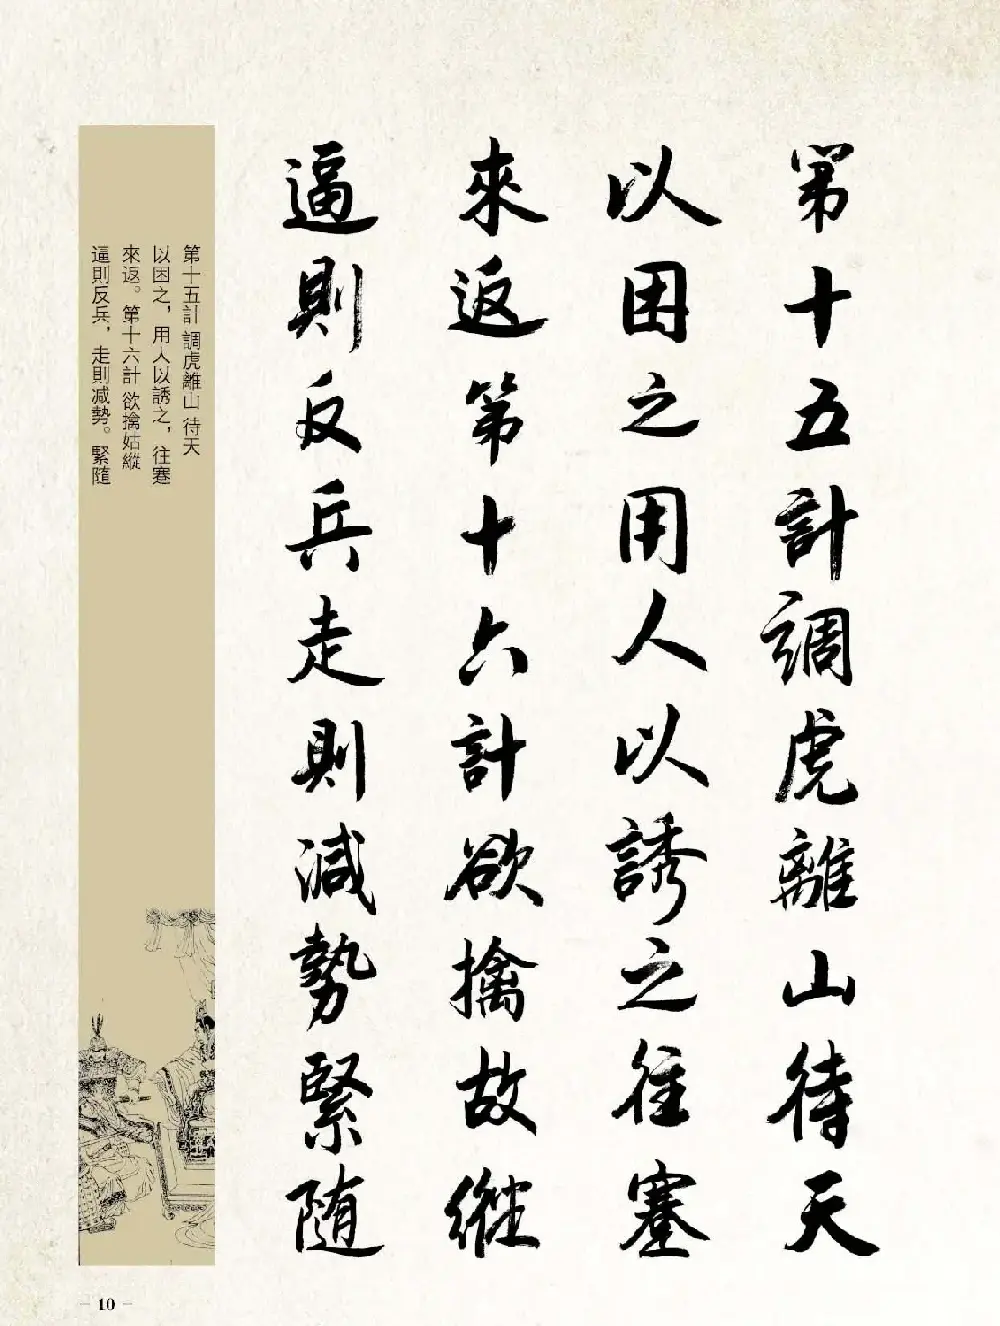 第十五計調虎離山待天
以困之用人以誘之往蹇
來返第十六計欲擒故縱
逼則反兵走則減勢緊隨
第十五計 調虎離山 待天
以困之，用人以誘之，往蹇
來返。第十六計 欲擒姑縱
逼則反兵，走則減勢。緊隨
- 10 -